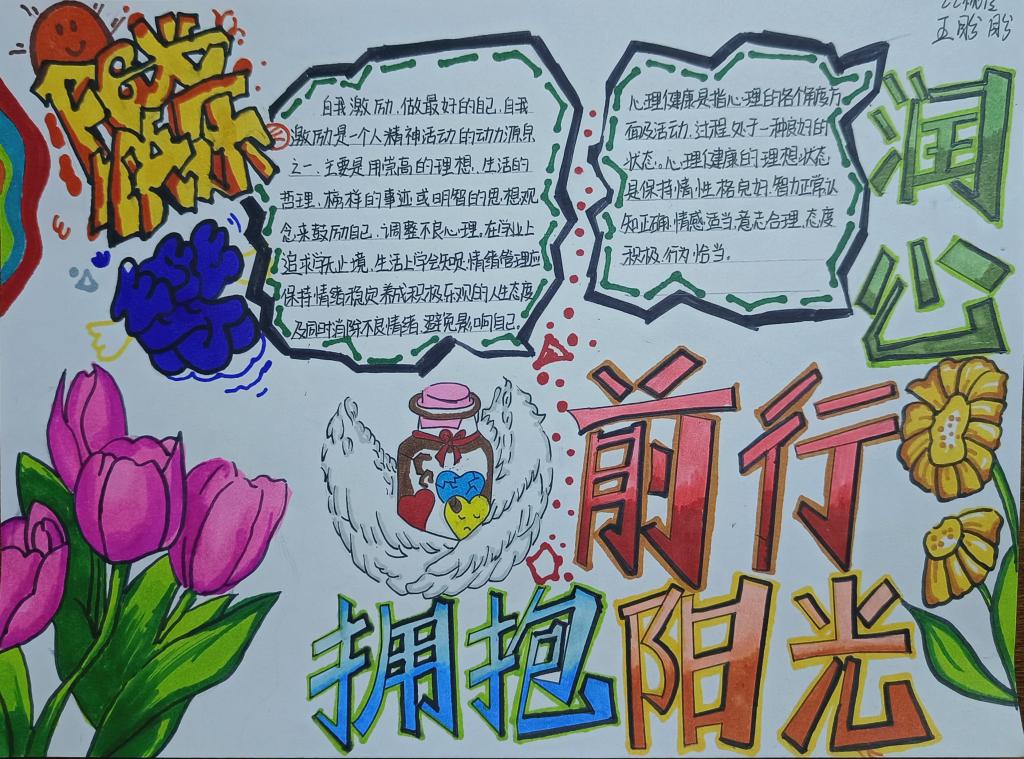 王盼盼
阳光
快乐
自我激励,做最好的自己,自我
激励是一个人精神活动的动力源泉
之一.主要是用崇高的理想、生活的
哲理、榜样的事迹或明智的思想观
念来鼓励自己,调整不良心理,在学业上
追求学无止境,生活上学会知足,情绪管理应
保持情绪稳定养成积极乐观的人生态度
及同时消除不良情绪,避免影响自己.
心理健康是指心理的各个角度方
面及活动,过程处于一种良好的
状态,心理健康的理想状态
是保持情,性格良好,智力正常认
知正确,情感适当,意志合理,态度
积极,行为恰当。
润心
前行
拥抱阳光